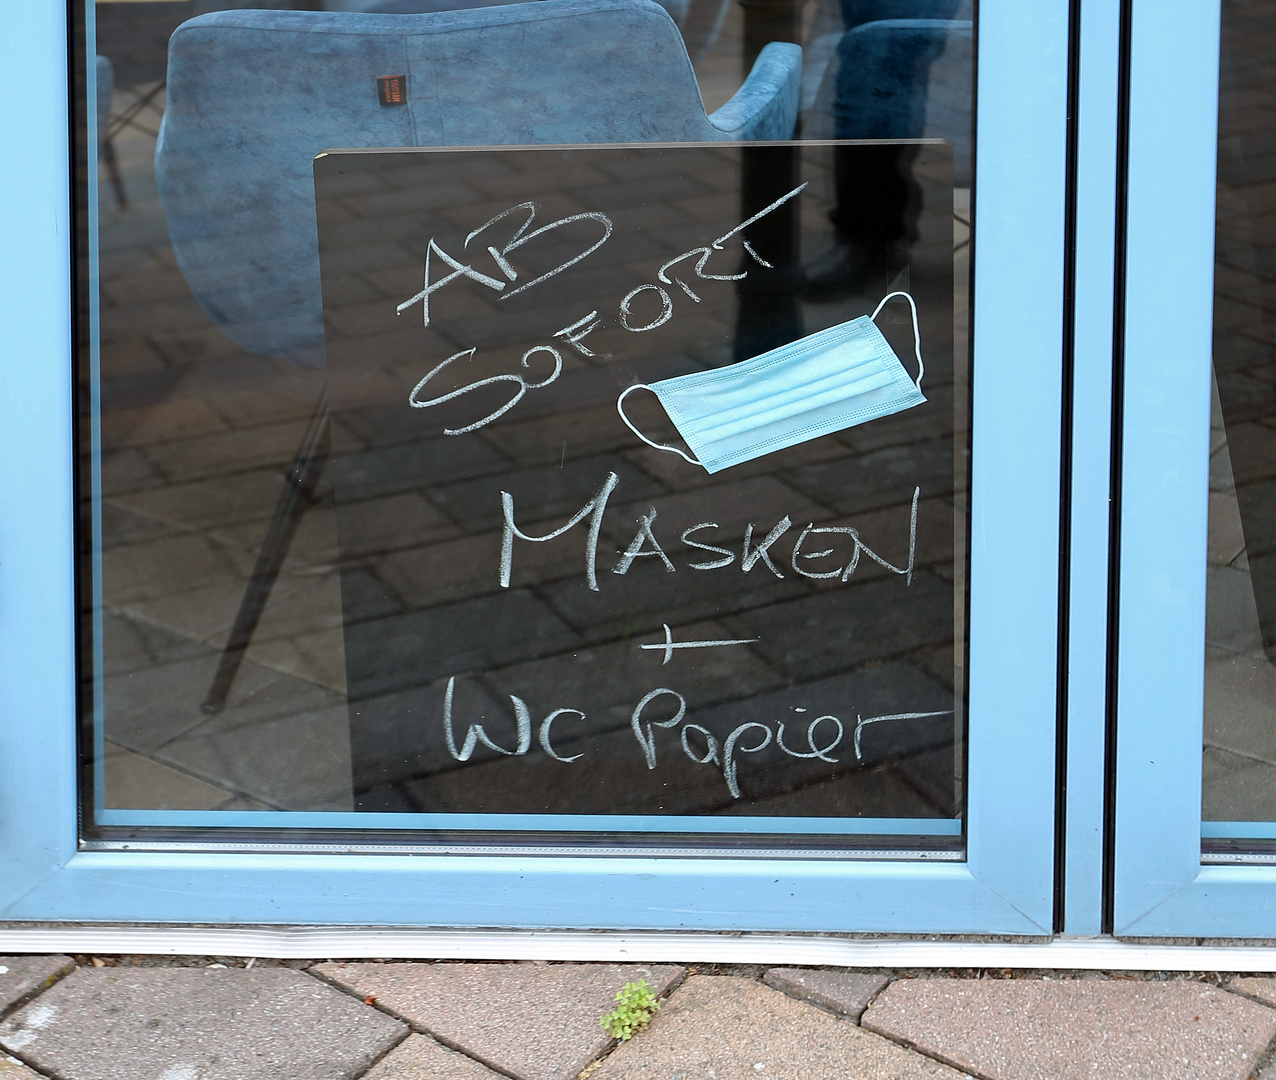 AB
SOFORT
MASKEN
+
WC Papier